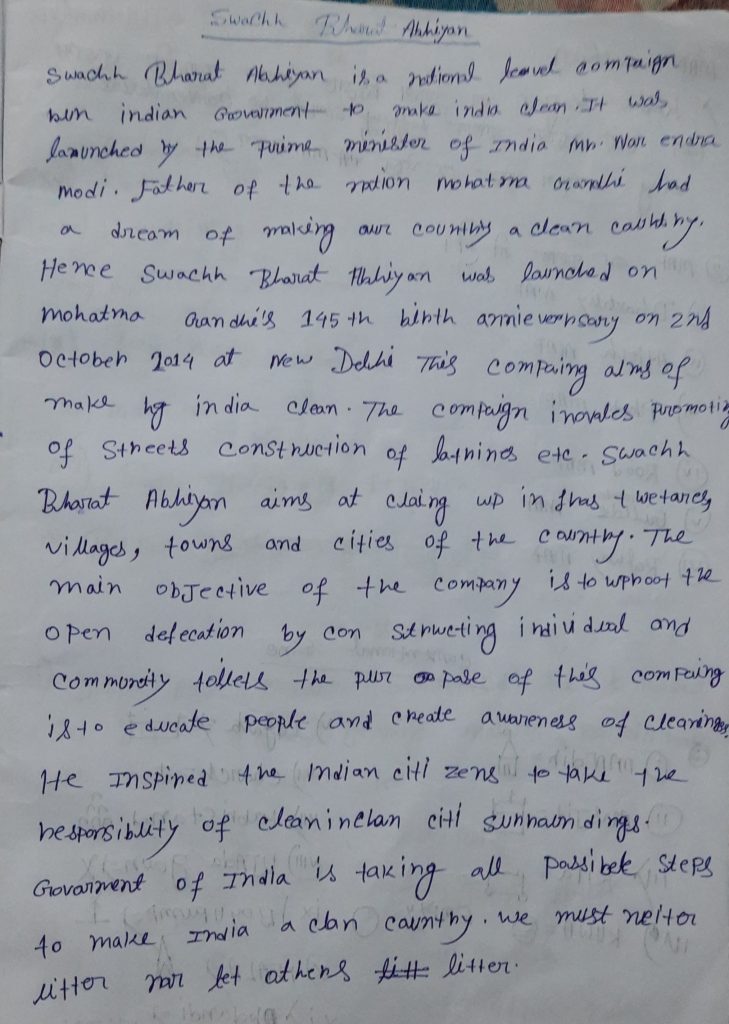 Swachh Bharat Abhiyan
Swachh Bharat Abhiyan is a national leavel compaign
bun indian Goovarment to make india clean. It was
launched by the Prime minister of India Mr. Nar endra
modi. Father of the nation mohatma Grandhi had
a dream of making our country a clean country.
Hence Swachh Bharat Abhiyan was launched on
mohatma Gandhi's 145 th birth annieversary on 2nd
October 2014 at New Delhi This compaing aims of
make ing india clean. The compaign inovales promoting
of Streets construction of latrines etc. Swachh
Bharat Abhiyan aims at claing up
villages, towns and cities of the country. The
main objective of the company is to uproot the
open defecation by con structing individual and
Commundity tollets the pur pose of this compaing
is to educate people and create awareness of
He Inspired the Indian citi zens to take the
responsiblity of citi surroundings.
Govarment of India is taking all possibek steps
to make India a clan country. we must neiter
litter nor let others litter.